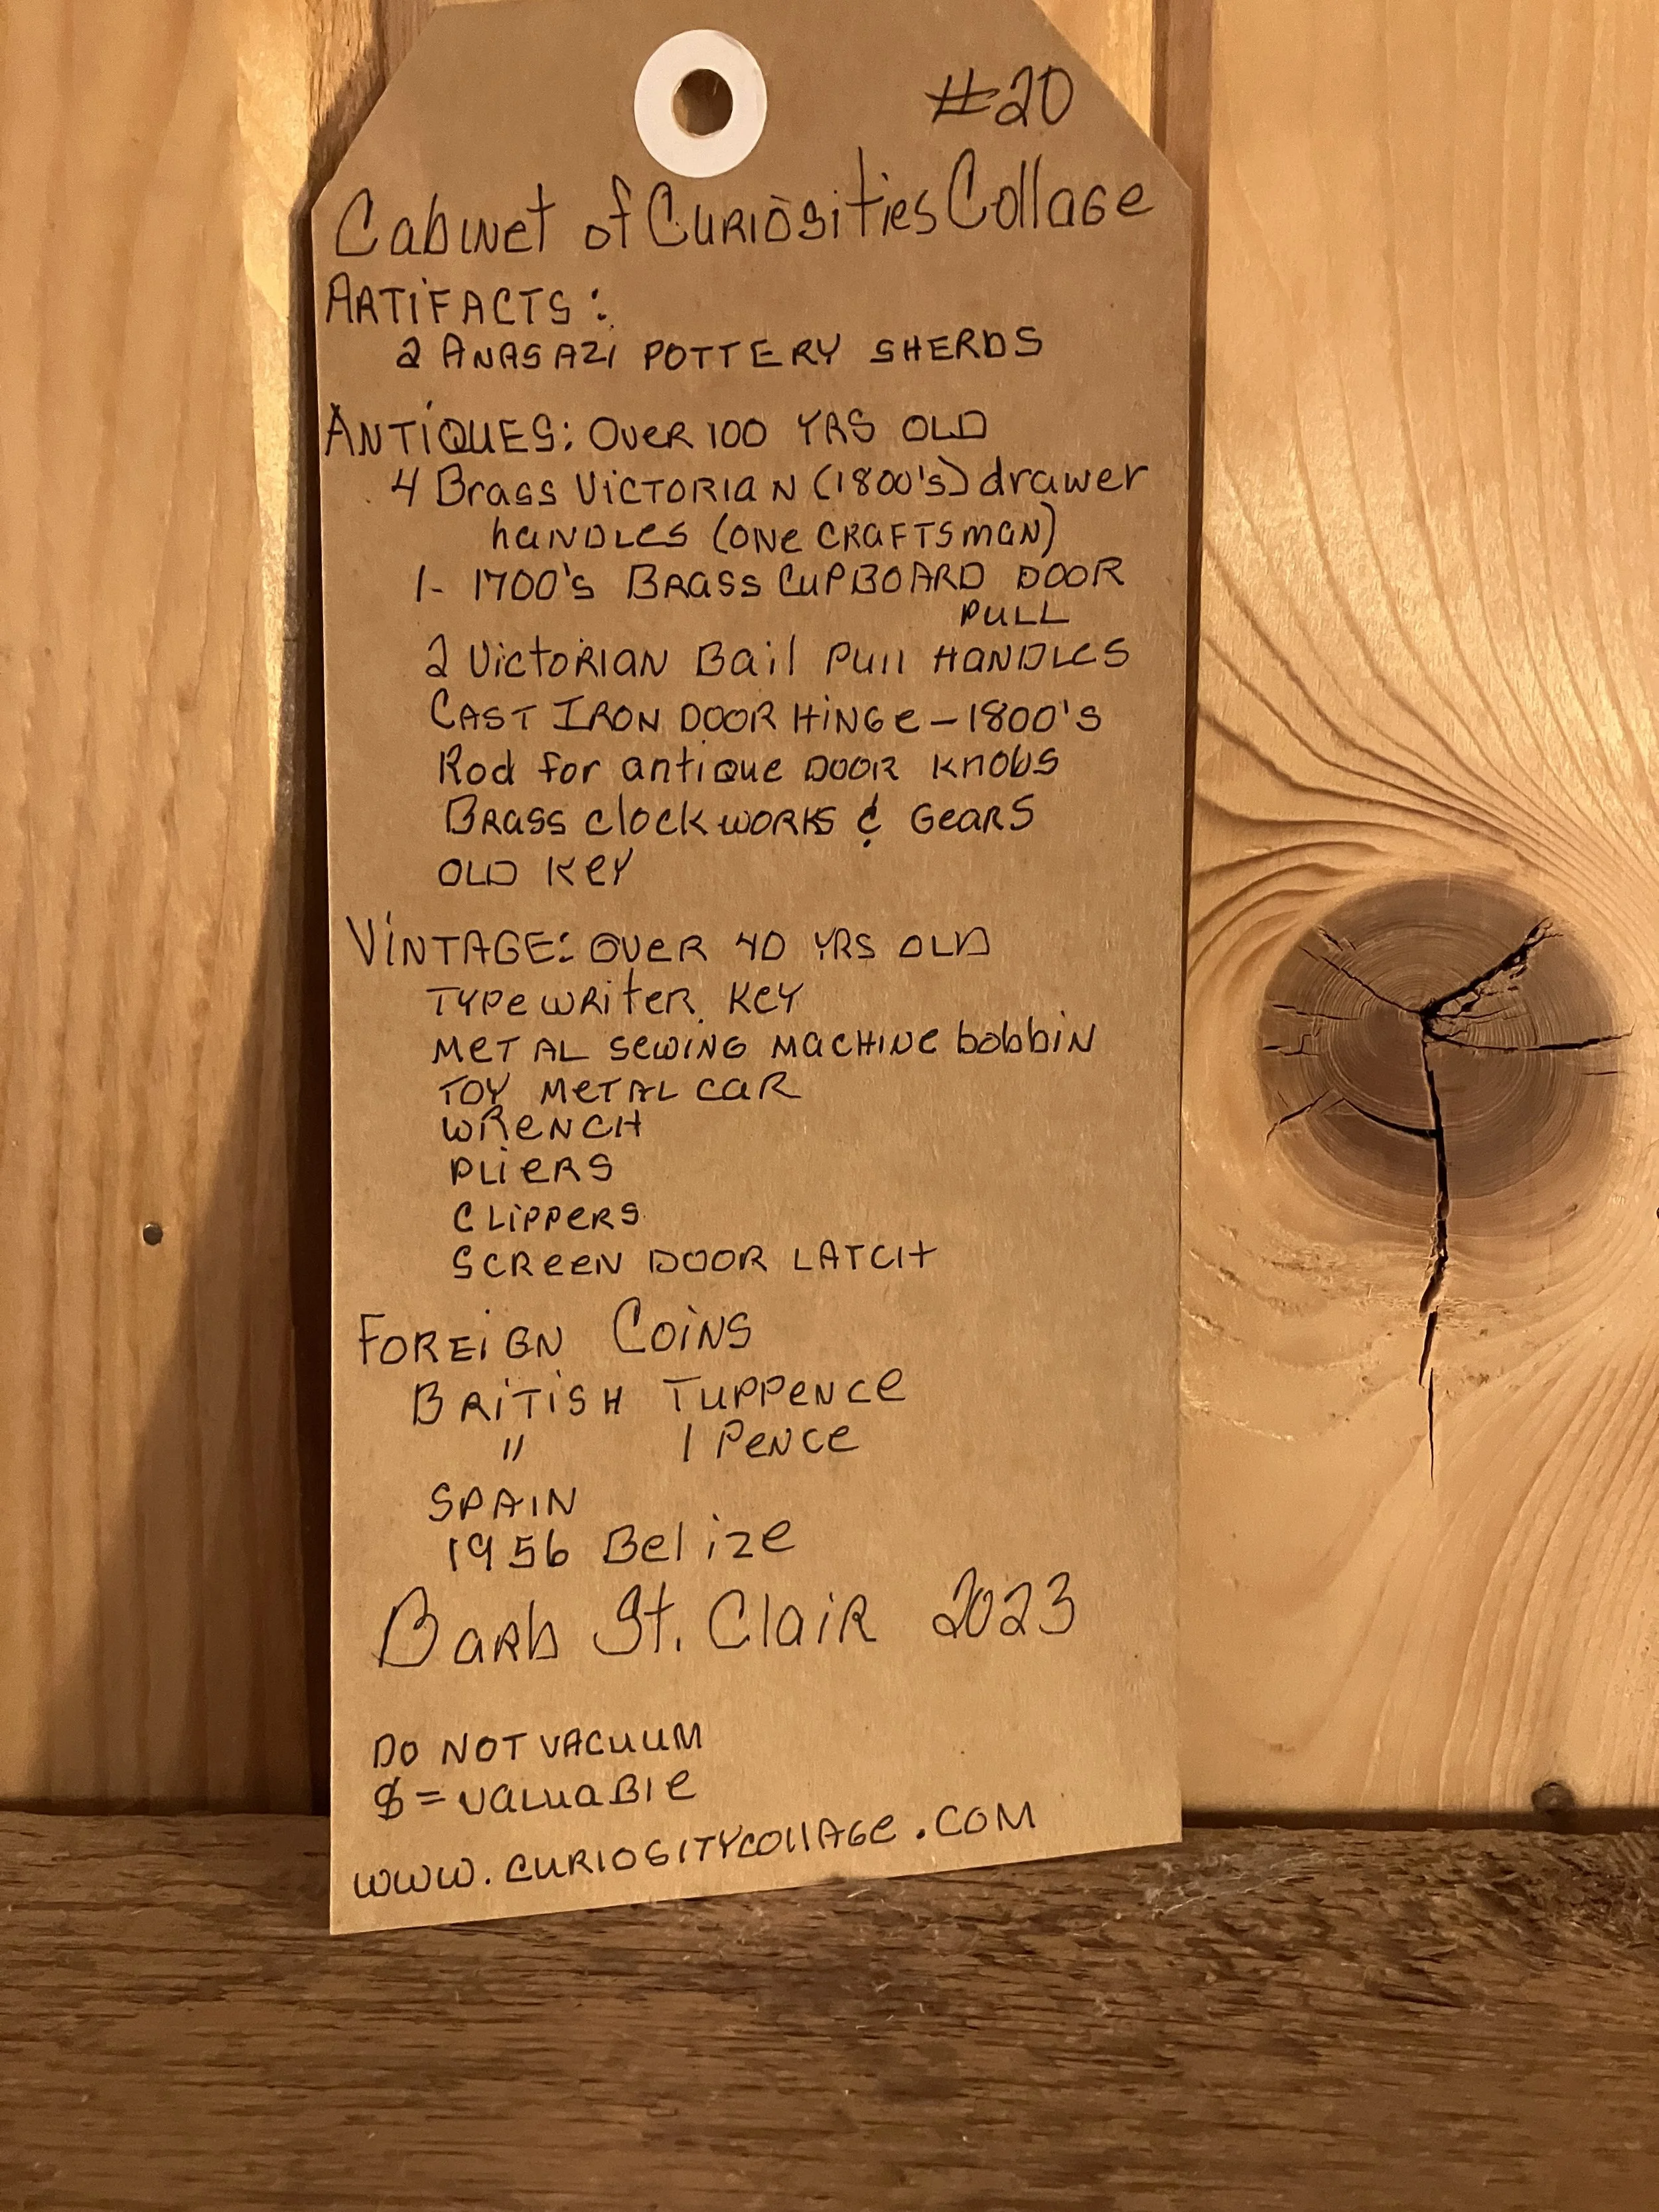 #20
Cabinet of Curiosities Collage
ARTIFACTS:
2 ANASAZI POTTERY SHERDS
ANTIQUES: OVER 100 YRS OLD
4 Brass VICTORIAN (1800's) drawer
handles (ONE CRAFTSMAN)
1- 1700's BRASS CUPBOARD DOOR
PULL
2 Victorian Bail Pull HANDLES
CAST IRON DOOR HINGE - 1800's
Rod for antique DOOR KNOBS
BRASS clockworks & GEARS
OLD KEY
VINTAGE: OVER 40 YRS OLD
TYPEWRITER KEY
METAL SEWING MACHINE bobbin
TOY METAL CAR
WRENCH
PLIERS
CLIPPERS
SCREEN DOOR LATCH
FOREIGN COINS
BRITISH TUPPENCE
" 1 PENCE
SPAIN
1956 Belize
Barb St. Clair 2023
DO NOT VACUUM
$ = VALUABLE
WWW.CURIOSITYCOLLAGE.COM